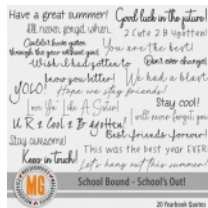 Have a great summer!
Good luck in the future!
I'll never forget when...
2 Cute 2 B 4gotten!
Couldn't have gotten
through the year without you!
You are the best!
Wish I had gotten to
know you better!
Don't ever change!
YOLO!
We had a blast
Hope we stay friends!
Luv Ya' Like A Sister!
Stay cool!
I will never forget you
U R 2 Cool 2 B 4gotten!
Best friends forever!
Stay awesome!
This was the best year EVER!
Keep in touch!
Let's hang out this summer!
MG
School Bound - School's Out!
20 Yearbook Quotes